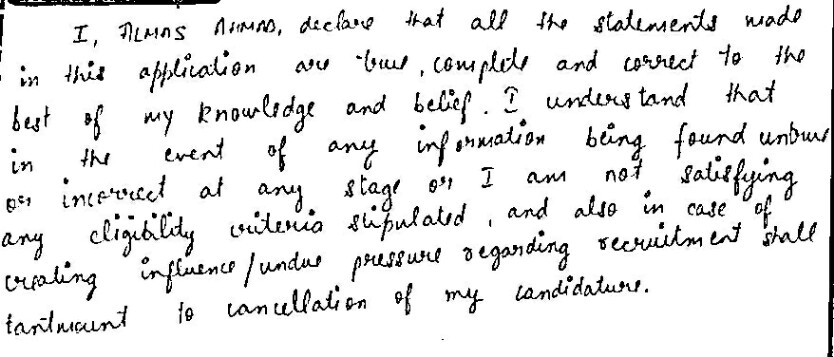 I, ALMAS AHMAD, declare that all the statements made
in this application are true, complete and correct to the
best of my knowledge and belief. I understand that
in the event of any information being found untrue
or incorrect at any stage or I am not satisfying
any eligibility criteria stipulated, and also in case of
creating influence/undue pressure regarding recruitment shall
tantmount to cancellation of my candidature.